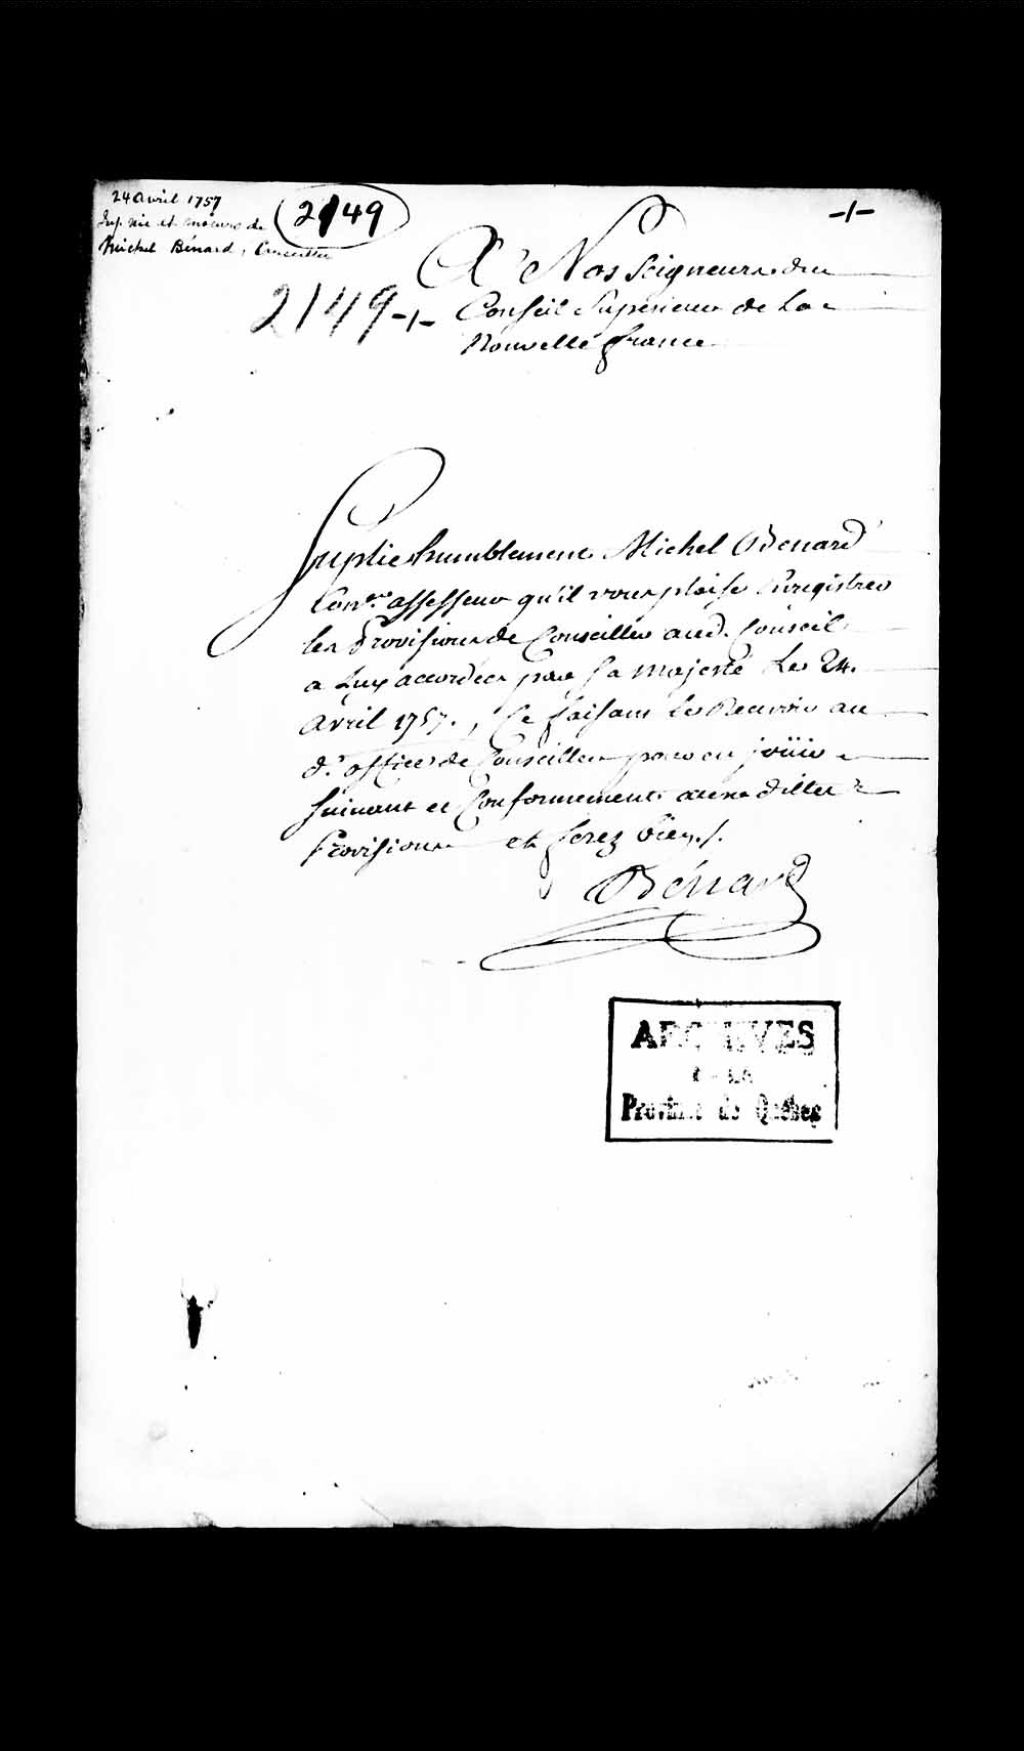 24 Avril 1757
Inf. vie et moeurs de
Michel Bénard, Conseiller
2149
-1-
A Nosseigneurs du
Conseil Superieur de La
2149-1-
Nouvelle france
Suplie humblement Michel Benard
Con.er assesseur qu'il vous plaise Enregistrer
les Provisions de Conseiller aud. Conseil
a Luy accordées par sa majesté Le 24.
avril 1757., Ce faisant Le Recevoir au
d.t office de Conseiller pour en joüir
suivant et Conformement auxdittes
Provisions et ferez bien./.
Bénard
ARCHIVES
DE LA
Province de Québec